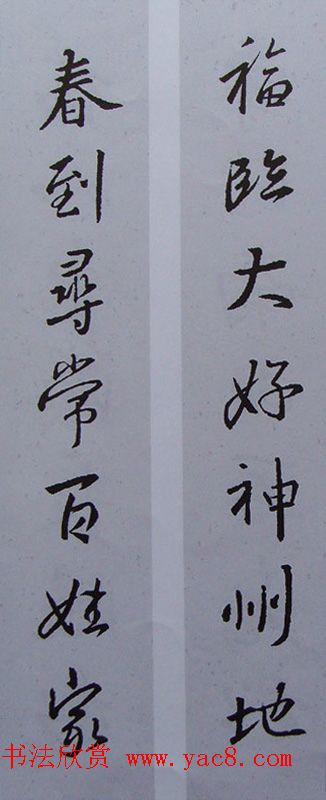 福臨大好神州地
春到尋常百姓家
书法欣赏 www.yac8.com